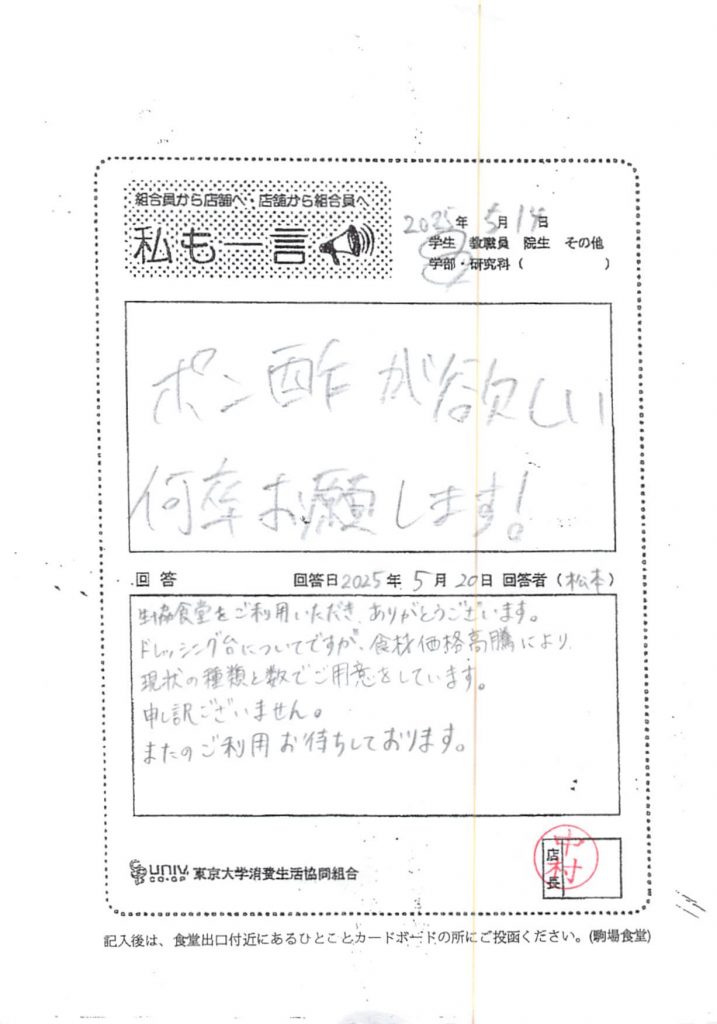 組合員から店舗へ・店舗から組合員へ
私も一言
2025年 5月 14日
学生 教職員 院生 その他
学部・研究科（ ）
ポン酢が欲しい
何卒お願いします！
回答 回答日2025年 5月 20日 回答者（松本）
生協食堂をご利用いただき、ありがとうございます。
ドレッシング台についてですが、食材価格高騰により、
現状の種類と数でご用意をしています。
申し訳ございません。
またのご利用お待ちしております。
UNIV. CO-OP 東京大学消費生活協同組合
店長 中村
記入後は、食堂出口付近にあるひとことカードボードの所にご投函ください。(駒場食堂)